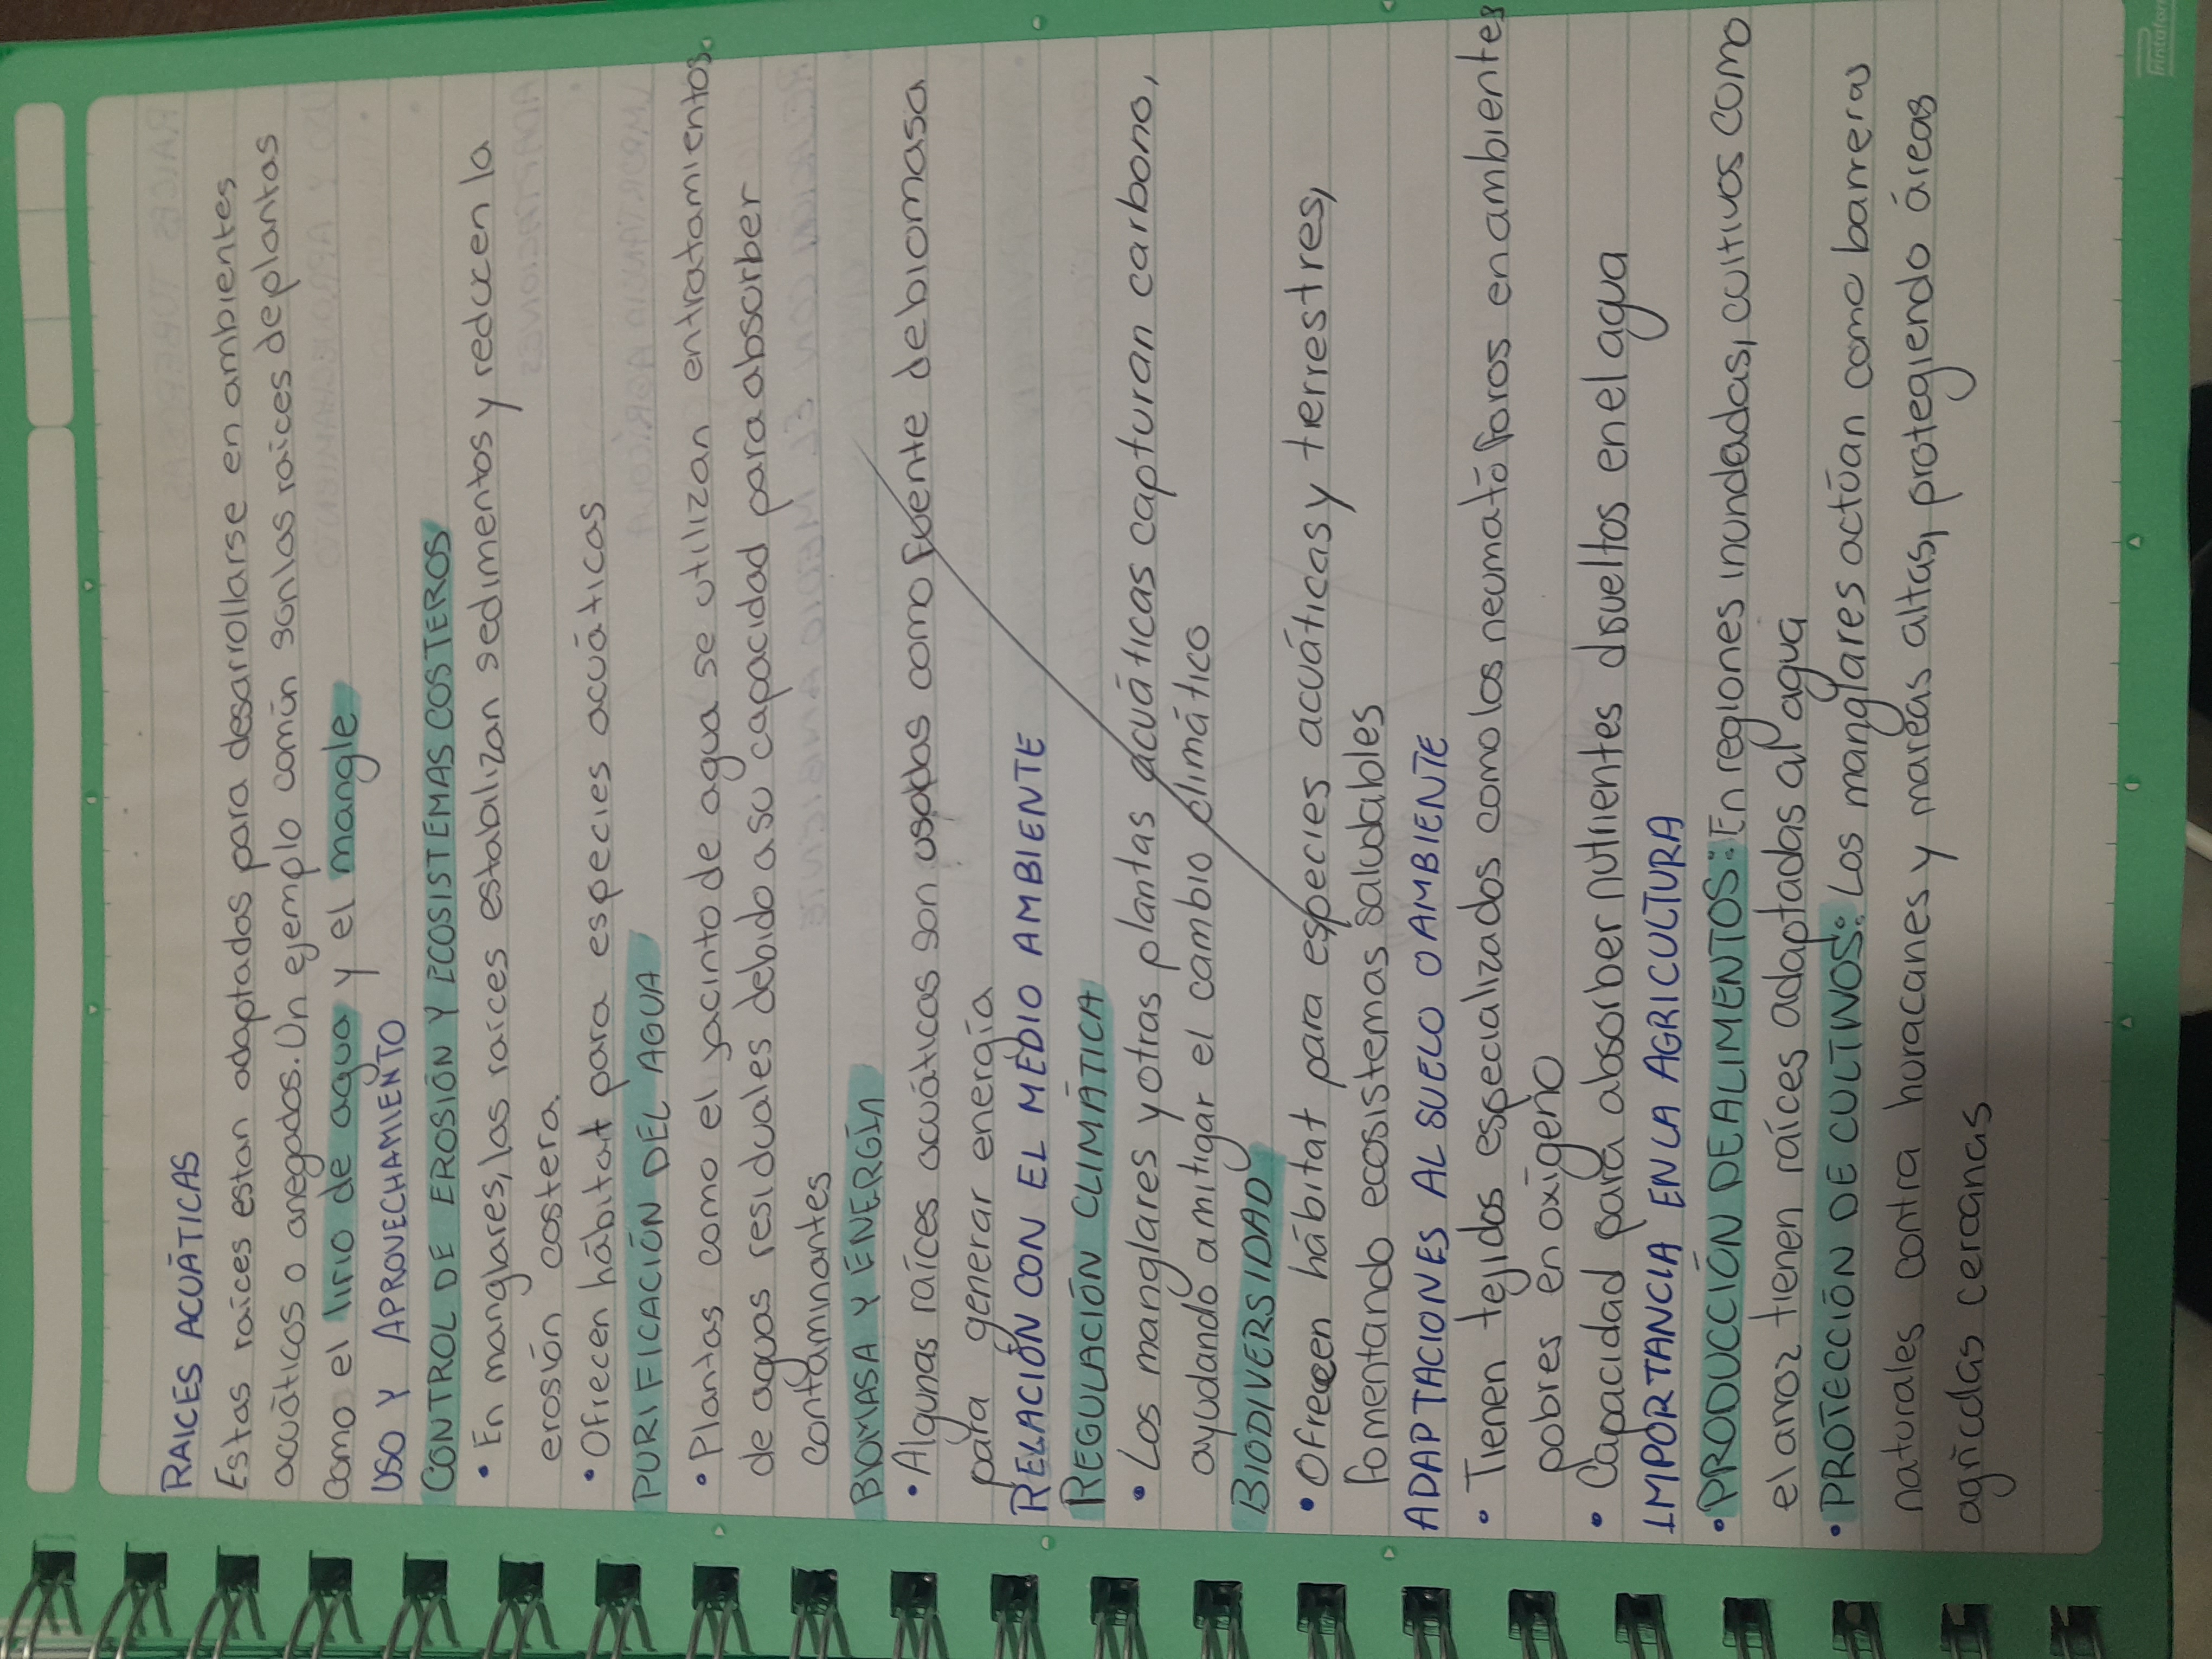 RAICES ACUÁTICAS
Estas raíces estan adaptados para desarrollarse en ambientes
acuáticos o anegados. Un ejemplo común son las raíces de plantas
como el lirio de agua y el mangle
USO Y APROVECHAMIENTO
CONTROL DE EROSIÓN Y ECOSISTEMAS COSTEROS
• En manglares, las raíces estabilizan sedimentos y reducen la
erosión costera.
• Ofrecen hábitat para especies acuáticas
PURIFICACIÓN DEL AGUA
• Plantas como el jacinto de agua se utilizan en tratamientos
de aguas residuales debido a su capacidad para absorber
contaminantes
BIOMASA Y ENERGÍA
• Algunas raíces acuáticas son usadas como fuente de biomasa
para generar energía
RELACIÓN CON EL MEDIO AMBIENTE
REGULACIÓN CLIMÁTICA
• Los manglares y otras plantas acuáticas capturan carbono,
ayudando a mitigar el cambio climático
BIODIVERSIDAD
• Ofrecen hábitat para especies acuáticas y terrestres,
fomentando ecosistemas saludables
ADAPTACIONES AL SUELO O AMBIENTE
• Tienen tejidos especializados como los neumatóforos en ambientes
pobres en oxígeno
• Capacidad para absorber nutrientes disueltos en el agua
IMPORTANCIA EN LA AGRICULTURA
• PRODUCCIÓN DE ALIMENTOS: En regiones inundadas, cultivos como
el arroz tienen raíces adaptadas al agua
• PROTECCIÓN DE CULTIVOS: Los manglares actúan como barreras
naturales contra huracanes y mareas altas, protegiendo áreas
agrícolas cercanas
Printaform